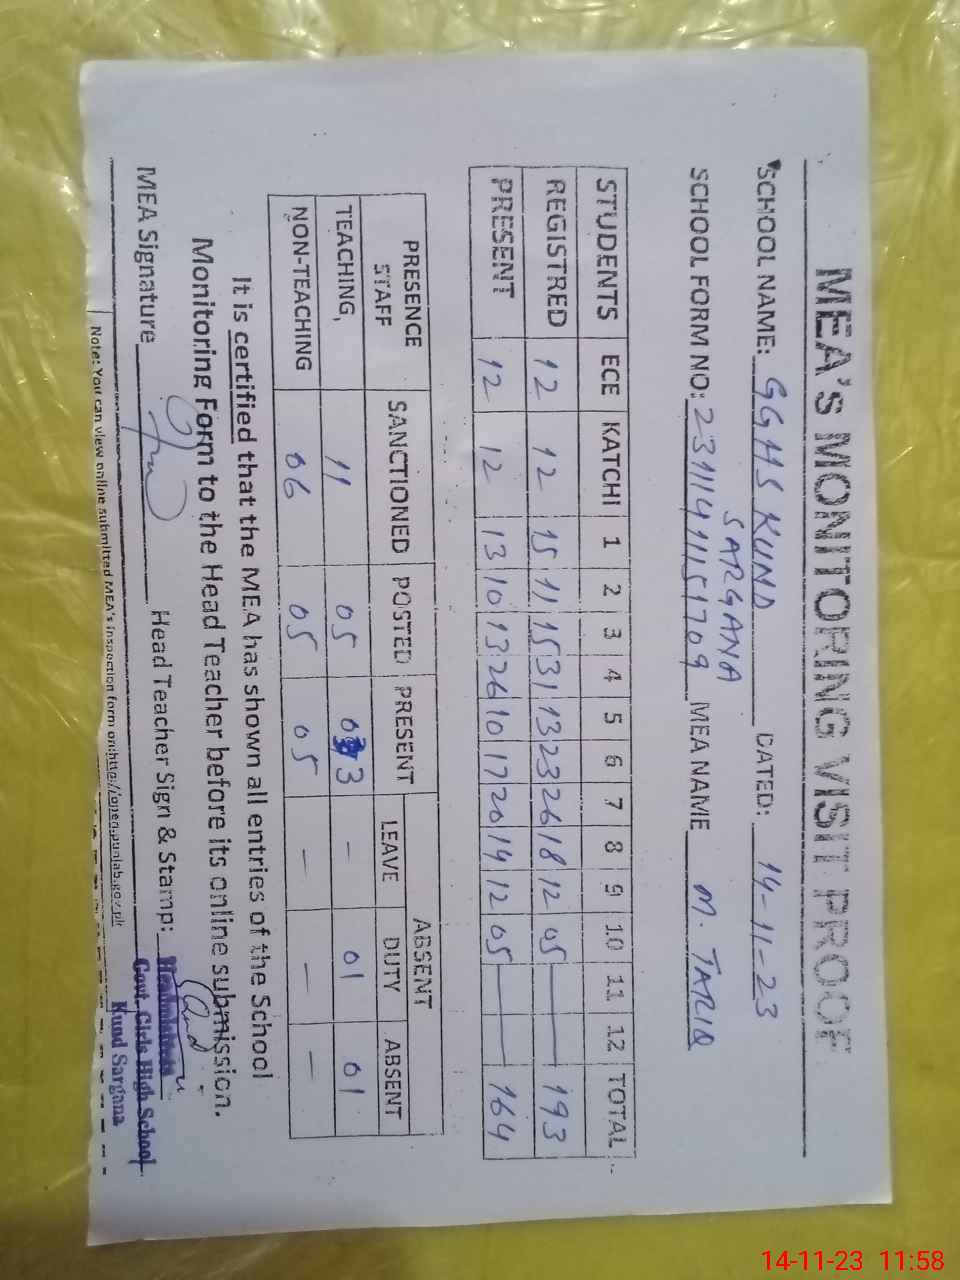 MEA'S MONITORING VISIT PROOF
SCHOOL NAME: GGHS KUND DATED: 14-11-23
SARGANA
SCHOOL FORM NO: 23111411151709 MEA NAME M. TARIQ
STUDENTS ECE KATCHI 1 2 3 4 5 6 7 8 9 10 11 12 TOTAL
REGISTRED 12 12 15 11 15 31 13 23 26 18 12 05 — — 193
PRESENT 12 12 13 10 13 26 10 17 20 14 12 05 — — 164
PRESENCE SANCTIONED POSTED PRESENT ABSENT
STAFF LEAVE DUTY ABSENT
TEACHING, 11 05 03 3 – 01 01
NON-TEACHING 06 05 05 – – –
It is certified that the MEA has shown all entries of the School
Monitoring Form to the Head Teacher before its online submission.
MEA Signature Head Teacher Sign & Stamp:
Headmistress
Govt. Girls High School
Kund Sargana
Note: You can view online submitted MEA's inspection form on:http://open.punjab.gov.pk
14-11-23 11:58